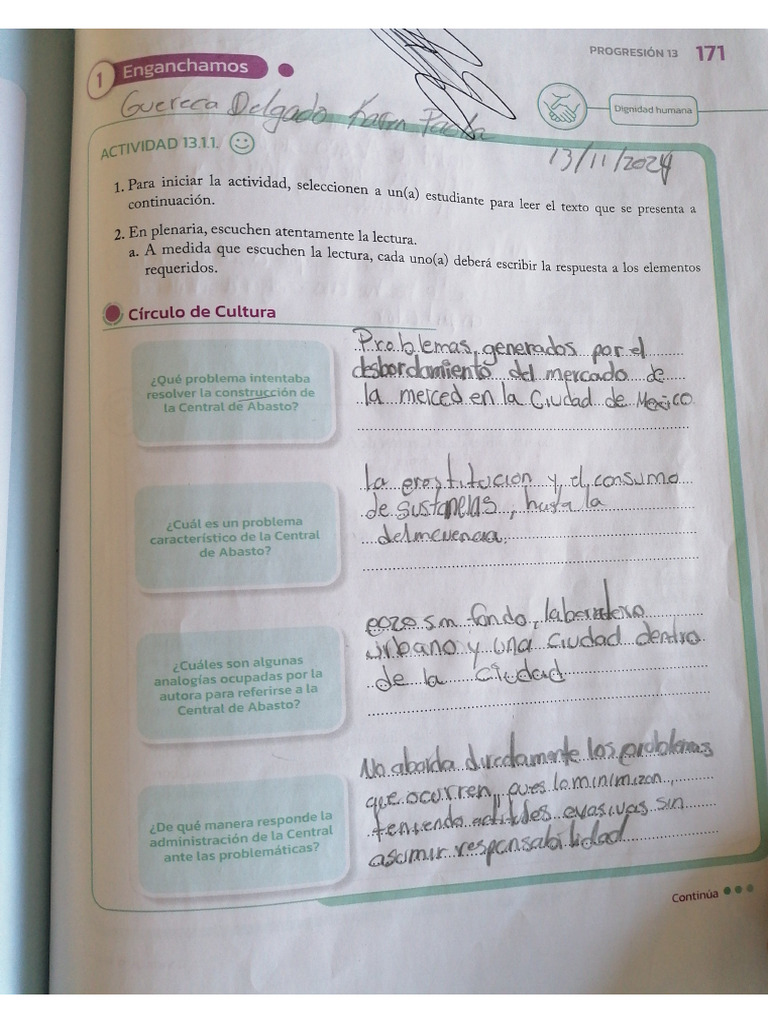 PROGRESIÓN 13 171
1 Enganchamos
Guereca Delgado Karen Paola
Dignidad humana
ACTIVIDAD 13.1.1.
13/11/2024
1. Para iniciar la actividad, seleccionen a un(a) estudiante para leer el texto que se presenta a
continuación.
2. En plenaria, escuchen atentamente la lectura.
a. A medida que escuchen la lectura, cada uno(a) deberá escribir la respuesta a los elementos
requeridos.
Círculo de Cultura
¿Qué problema intentaba
resolver la construcción de
la Central de Abasto?
Problemas generados por el
desbordamiento del mercado de
la merced en la Ciudad de Mexico
¿Cuál es un problema
característico de la Central
de Abasto?
la prostitucion y el consumo
de sustancias, hasta la
delincuencia.
¿Cuáles son algunas
analogías ocupadas por la
autora para referirse a la
Central de Abasto?
pozo sin fondo, laberinto
urbano y una ciudad dentro
de la ciudad
¿De qué manera responde la
administración de la Central
ante las problemáticas?
No aborda directamente los problemas
que ocurren, pues lo minimizan,
teniendo actitudes evasivas sin
asumir responsabilidad
Continúa